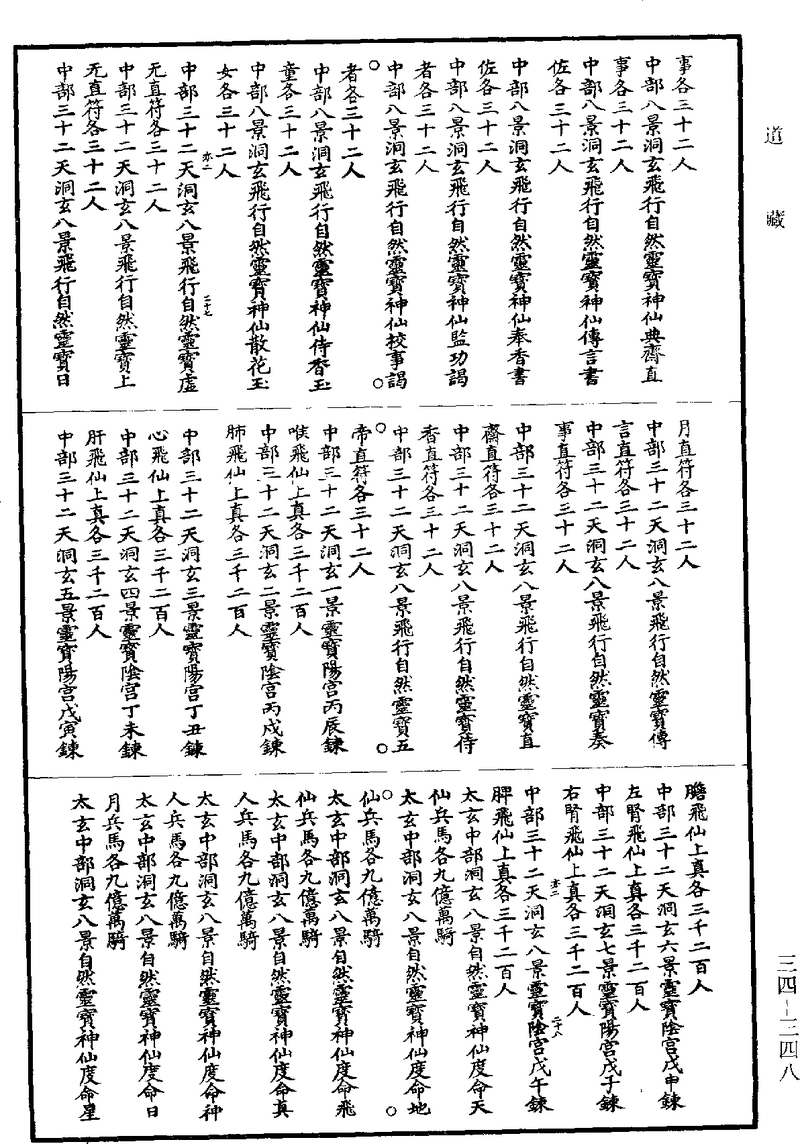 道藏
事各三十二人
中部八景洞玄飛行自然靈寶神仙典齋直
事各三十二人
中部八景洞玄飛行自然靈寶神仙傳言書
佐各三十二人
中部八景洞玄飛行自然靈寶神仙奉香書
佐各三十二人
中部八景洞玄飛行自然靈寶神仙監功謁
者各三十二人
中部八景洞玄飛行自然靈寶神仙校事謁
者各三十二人
中部八景洞玄飛行自然靈寶神仙侍香玉
童各三十二人
中部八景洞玄飛行自然靈寶神仙散花玉
女各三十二人
中部三十二天洞玄八景飛行自然靈寶虛
无直符各三十二人
中部三十二天洞玄八景飛行自然靈寶上
无直符各三十二人
中部三十二天洞玄八景飛行自然靈寶日
月直符各三十二人
中部三十二天洞玄八景飛行自然靈寶傳
言直符各三十二人
中部三十二天洞玄八景飛行自然靈寶奏
事直符各三十二人
中部三十二天洞玄八景飛行自然靈寶直
齋直符各三十二人
中部三十二天洞玄八景飛行自然靈寶侍
香直符各三十二人
中部三十二天洞玄八景飛行自然靈寶五
帝直符各三十二人
中部三十二天洞玄一景靈寶陽宮丙辰鍊
喉飛仙上真各三千二百人
中部三十二天洞玄二景靈寶陰宮丙戌鍊
肺飛仙上真各三千二百人
中部三十二天洞玄三景靈寶陽宮丁丑鍊
心飛仙上真各三千二百人
中部三十二天洞玄四景靈寶陰宮丁未鍊
肝飛仙上真各三千二百人
中部三十二天洞玄五景靈寶陽宮戊寅鍊
膽飛仙上真各三千二百人
中部三十二天洞玄六景靈寶陰宮戊申鍊
左腎飛仙上真各三千二百人
中部三十二天洞玄七景靈寶陽宮戊子鍊
右腎飛仙上真各三千二百人
中部三十二天洞玄八景靈寶陰宮戊午鍊
脾飛仙上真各三千二百人
太玄中部洞玄八景自然靈寶神仙度命天
仙兵馬各九億萬騎
太玄中部洞玄八景自然靈寶神仙度命地
仙兵馬各九億萬騎
太玄中部洞玄八景自然靈寶神仙度命飛
仙兵馬各九億萬騎
太玄中部洞玄八景自然靈寶神仙度命真
人兵馬各九億萬騎
太玄中部洞玄八景自然靈寶神仙度命神
人兵馬各九億萬騎
太玄中部洞玄八景自然靈寶神仙度命日
月兵馬各九億萬騎
太玄中部洞玄八景自然靈寶神仙度命星
二十七
二十八
三四－二四八